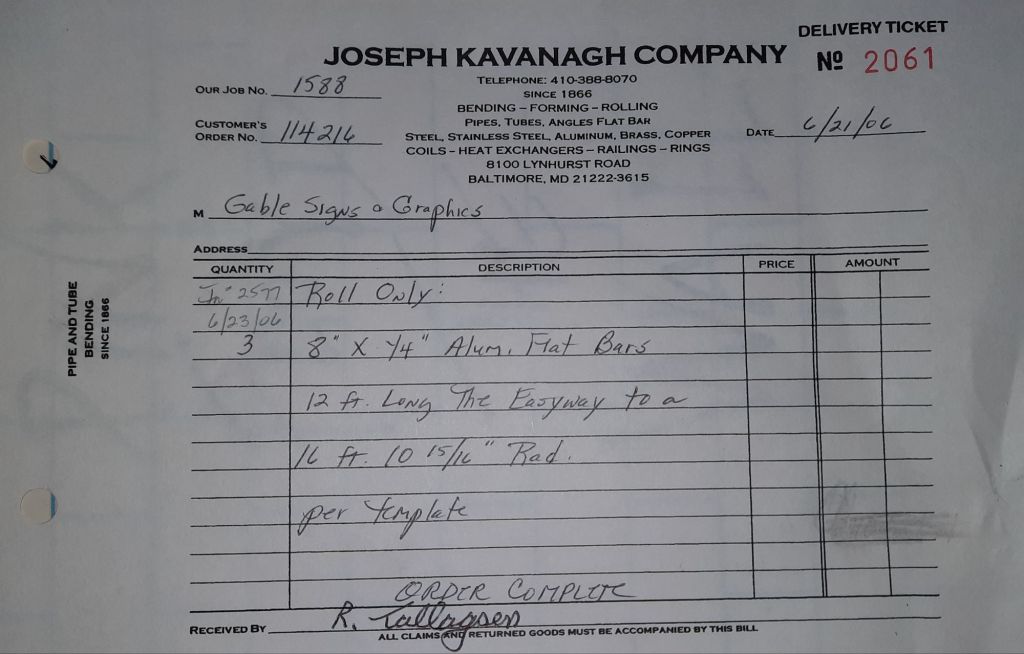 DELIVERY TICKET
JOSEPH KAVANAGH COMPANY
Nº 2061
TELEPHONE: 410-388-8070
SINCE 1866
BENDING – FORMING – ROLLING
PIPES, TUBES, ANGLES FLAT BAR
STEEL, STAINLESS STEEL, ALUMINUM, BRASS, COPPER
COILS – HEAT EXCHANGERS – RAILINGS – RINGS
8100 LYNHURST ROAD
BALTIMORE, MD 21222-3615
OUR JOB NO. 1588
CUSTOMER'S
ORDER NO. 114216
DATE 6/21/06
M Gable Signs & Graphics
ADDRESS
QUANTITY DESCRIPTION PRICE AMOUNT
2577 Roll Only:
6/23/06
3 8" X 1/4" Alum. Flat Bars
12 ft. Long The Easyway to a
16 ft. 10 15/16" Rad.
per template
ORDER COMPLETE
RECEIVED BY R.
ALL CLAIMS AND RETURNED GOODS MUST BE ACCOMPANIED BY THIS BILL
PIPE AND TUBE
BENDING
SINCE 1866